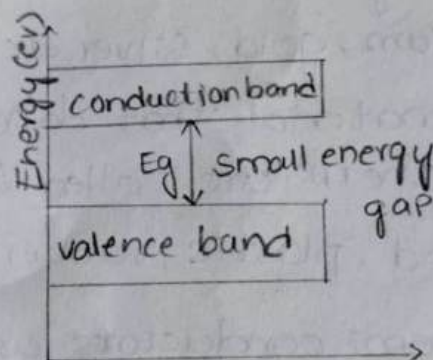 Energy(ev)
conductionband
Eg small energy
gap
valence band